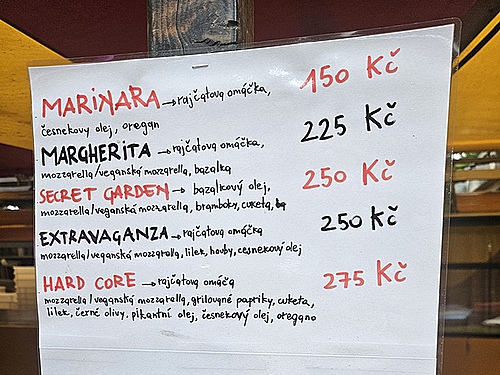 MARINARA → rajčatova omáčka, 150 Kč
česnekovy olej, oregan
MARGHERITA → rajčatova omáčka, 225 Kč
mozzarella/veganská mozzarella, bazalka
SECRET GARDEN → bazalkový olej, 250 Kč
mozzarella/veganská mozzarella, brambory, cuketa,
EXTRAVAGANZA → rajčatova omáčka 250 Kč
mozzarella/veganská mozzarella, lilek, houby, cesnekový olej
HARD CORE → rajčatova omáča 275 Kč
mozzarella/veganská mozzarella, grilované papriky, cuketa,
lilek, černé olivy, pikantní olej, česnekový olej, oregano